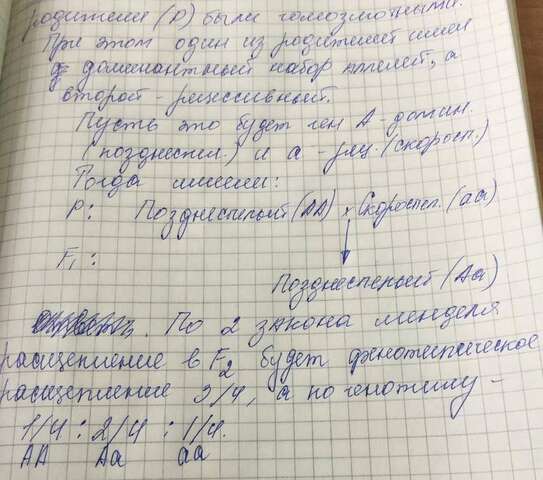 родители (P) были гомозиготными.
При этом один из родителей имел
доминантный набор аллелей, а
второй - рецессивный.
Пусть это будет ген А - домин.
(позднеспел.) и а - рец. (скоросп.)
Тогда имеем:
P: Позднеспелый (АА) x Скороспел. (аа)
F1 :
Позднеспелый (Аа)
По 2 закона менделя
расщепление в F2 будет фенотипическое
расщепление 3/4, а по генотипу -
1/4 : 2/4 : 1/4.
АА Аа аа